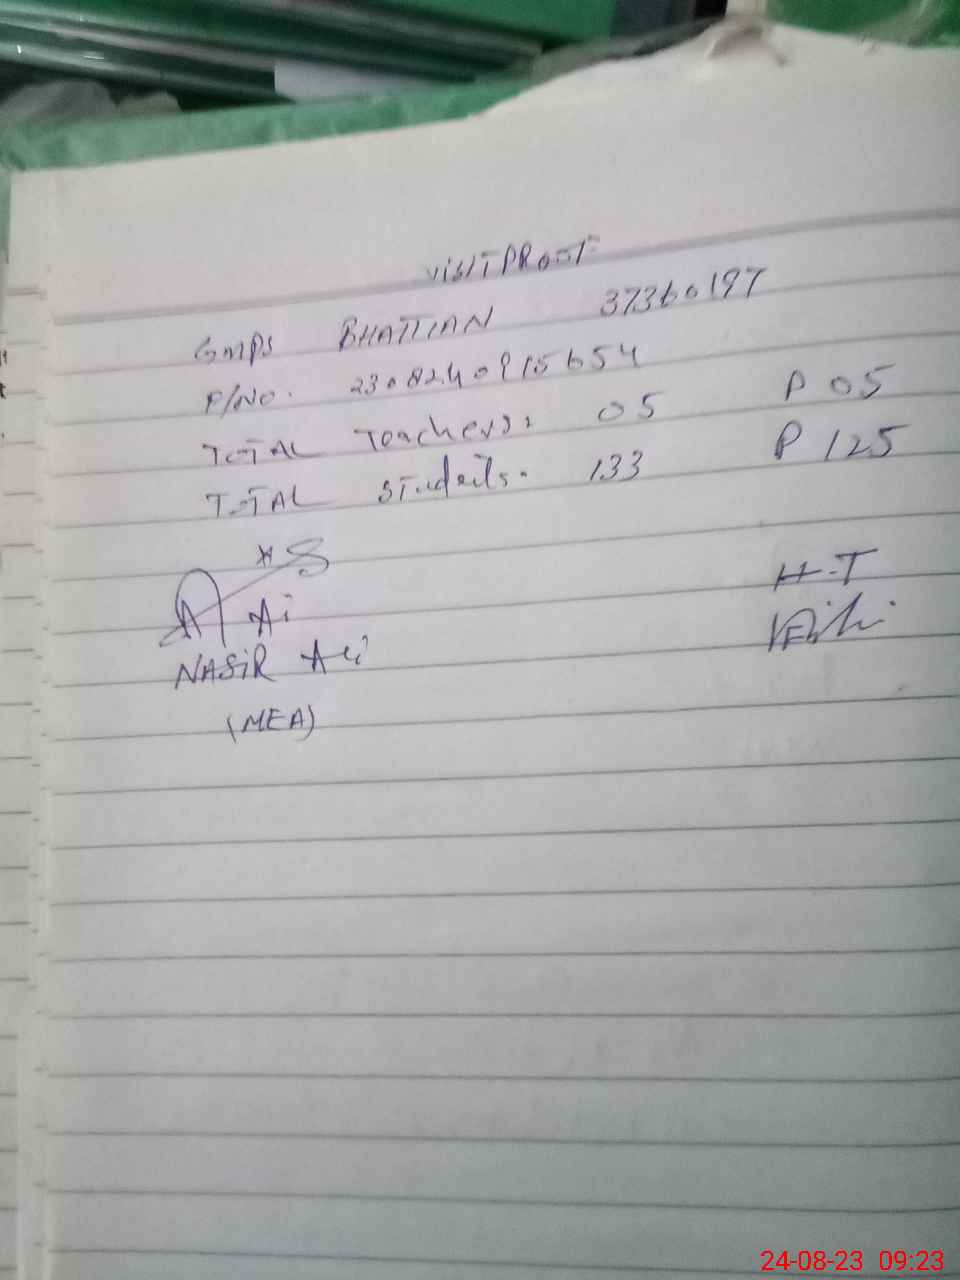 VISIT PROOF
GMPS BHATTIAN 37360197
P/NO. 2308240915654
TOTAL Teachers: 05 P 05
TOTAL Students. 133 P 125
H.T
NASIR Ali
(MEA)
24-08-23 09:23